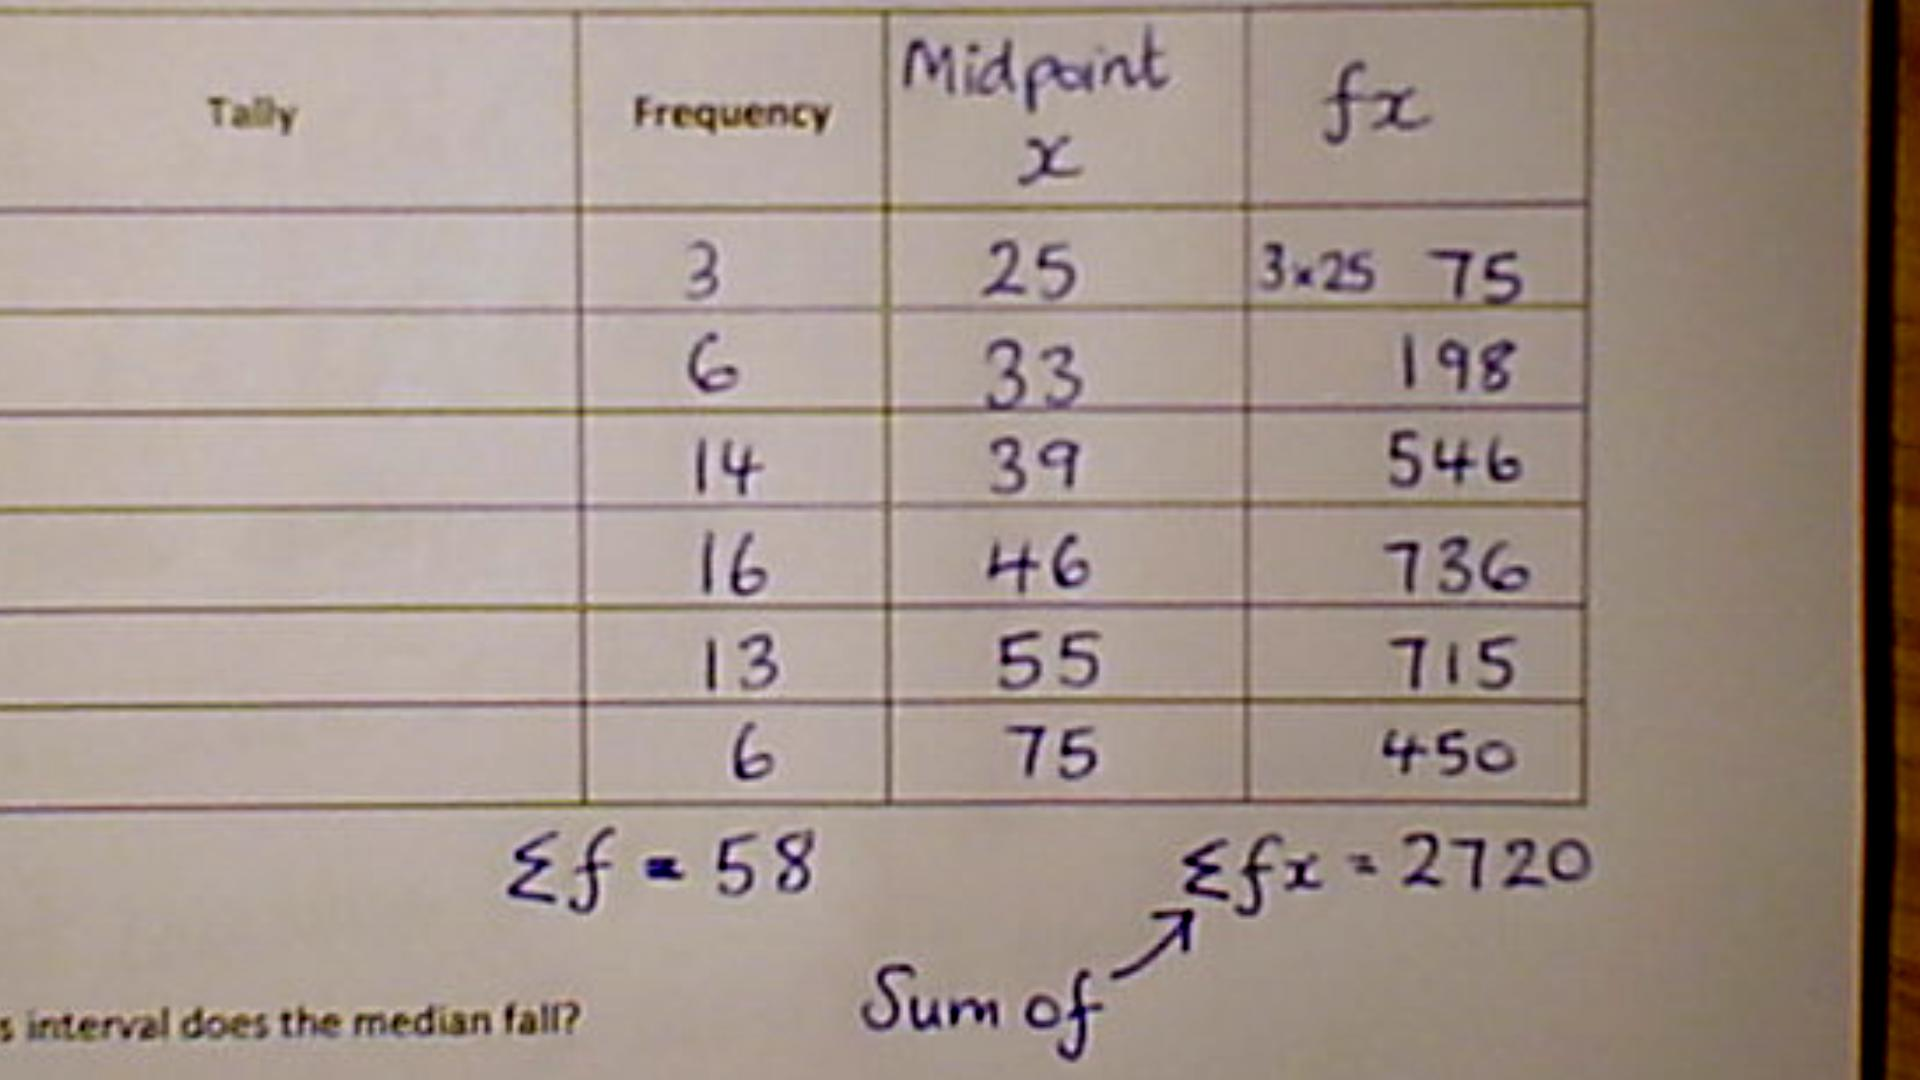 Tally Frequency Midpoint x fx
3 25 3×25 75
6 33 198
14 39 546
16 46 736
13 55 715
6 75 450
Σf = 58 Σfx = 2720
Sum of
s interval does the median fall?